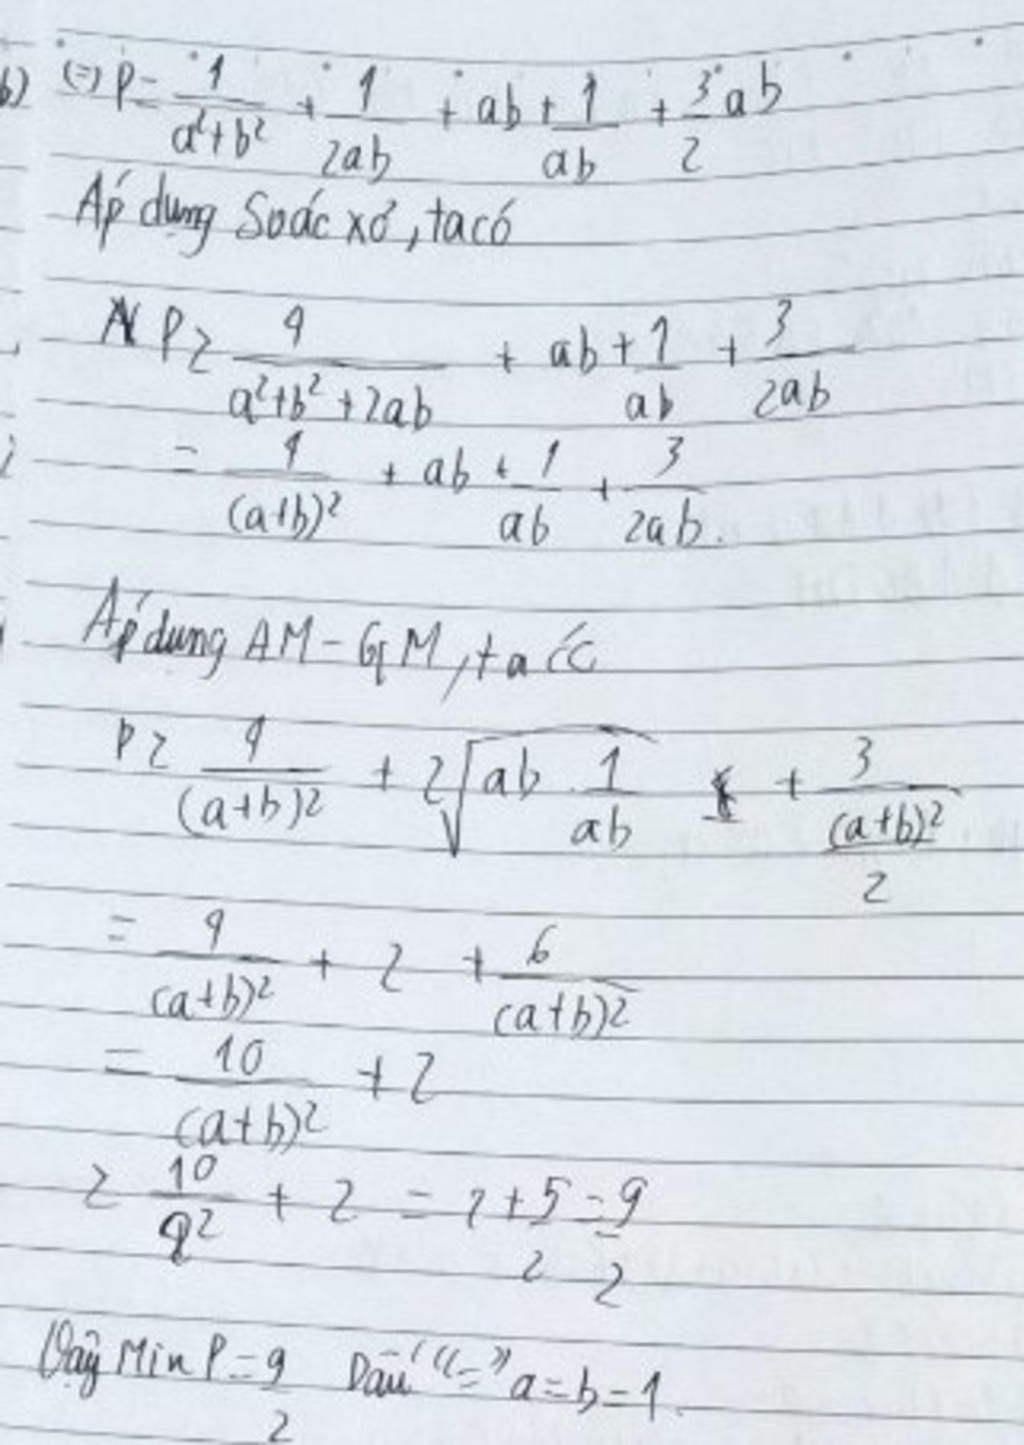 b) (=) P = 1/(a²+b²) + 1/(2ab) + ab + 1/(ab) + 3/2 ab
Áp dụng Svác xơ, ta có
P ≥ 4/(a²+b²+2ab) + ab + 1/(ab) + 3/(2ab)
= 4/(a+b)² + ab + 1/(ab) + 3/(2ab).
Áp dụng AM-GM, ta có
P ≥ 4/(a+b)² + 2√(ab . 1/(ab)) + 3/((a+b)²/2)
= 4/(a+b)² + 2 + 6/(a+b)²
= 10/(a+b)² + 2
≥ 10/2² + 2 = 2 + 5/2 = 9/2
Vậy Min P = 9/2 Dấu "=" a=b=1.